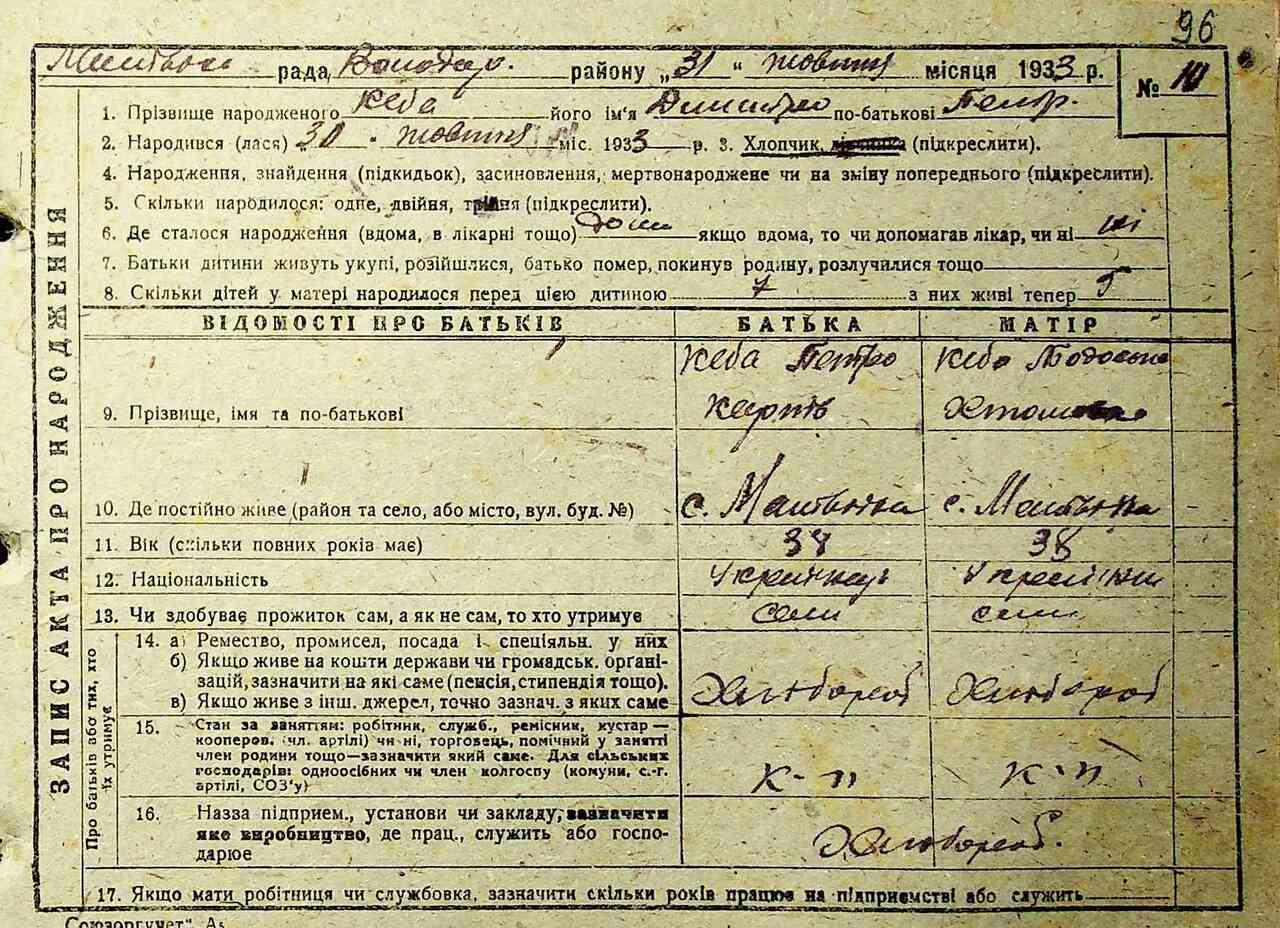 96
рада Володар. району „31“ жовтня місяця 1933 р.
№ 10
1. Прізвище народженого Кеба його ім'я Дмитро по-батькові Петр.
2. Народився (лася) „30“ жовтня міс. 1933 р. 3. Хлопчик, дівчинка (підкреслити).
4. Народження, знайдення (підкидьок), засиновлення, мертвонароджене чи на зміну попереднього (підкреслити).
5. Скільки народилося: одне, двійня, трійня (підкреслити).
6. Де сталося народження (вдома, в лікарні тощо) дома якщо вдома, то чи допомагав лікар, чи ні ні
7. Батьки дитини живуть укупі, розійшлися, батько помер, покинув родину, розлучилися тощо
8. Скільки дітей у матері народилося перед цією дитиною 7 з них живі тепер 5
ВІДОМОСТІ ПРО БАТЬКІВ БАТЬКА МАТІР
Кеба Петро Кеба Тодоська
9. Прізвище, імя та по-батькові Карпів
10. Де постійно живе (район та село, або місто, вул. буд. №) с. Матвіиха с. Матвіиха
11. Вік (скільки повних років має) 38 38
12. Національність
13. Чи здобуває прожиток сам, а як не сам, то хто утримує сам сама
14. а) Ремество, промисел, посада і спеціяльн. у них
б) Якщо живе на кошти держави чи громадськ. органі-
зацій, зазначити на які саме (пенсія, стипендія тощо).
в) Якщо живе з інш. джерел, точно зазнач. з яких саме Хлібороб Хлібороб
15. Стан за заняттям: робітник, служб., ремісник, кустар —
кооперов. (чл. артілі) чи ні, торговець, помічний у занятті
член родини тощо—зазначити який саме. Для сільських
господарів: одноосібних чи член колгоспу (комуни, с.-г.
артілі, СОЗ'у) к-п к-п
16. Назва підприєм., установи чи закладу, зазначити
яке виробництво, де прац., служить або госпо-
дарює Хлібороб.
17. Якщо мати робітниця чи службовка, зазначити скільки років працює на підприємстві або служить
ЗАПИС АКТА ПРО НАРОДЖЕННЯ
Про батьків або тих, хто
їх утримує
Союзоргучет"